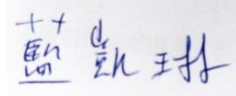 藍凱琳